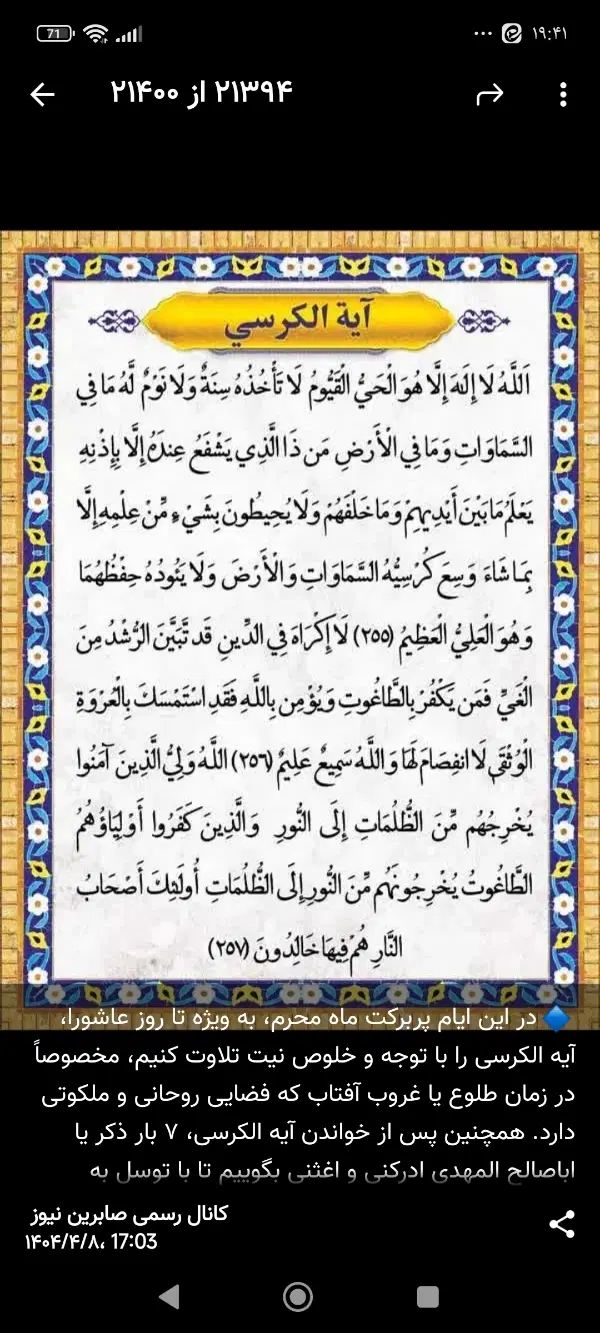 71
۱۹:۴۱
۲۱۳۹۴ از ۲۱۴۰۰
آية الكرسي
اَللَّهُ لَا إِلَهَ إِلَّا هُوَ الْحَيُّ الْقَيُّومُ لَا تَأْخُذُهُ سِنَةٌ وَلَا نَوْمٌ لَّهُ مَا فِي
السَّمَاوَاتِ وَمَا فِي الْأَرْضِ مَن ذَا الَّذِي يَشْفَعُ عِندَهُ إِلَّا بِإِذْنِهِ
يَعْلَمُ مَا بَيْنَ أَيْدِيهِمْ وَمَا خَلْفَهُمْ وَلَا يُحِيطُونَ بِشَيْءٍ مِّنْ عِلْمِهِ إِلَّا
بِمَا شَاءَ وَسِعَ كُرْسِيُّهُ السَّمَاوَاتِ وَالْأَرْضَ وَلَا يَئُودُهُ حِفْظُهُمَا
وَهُوَ الْعَلِيُّ الْعَظِيمُ (٢٥٥) لَا إِكْرَاهَ فِي الدِّينِ قَد تَّبَيَّنَ الرُّشْدُ مِنَ
الْغَيِّ فَمَن يَكْفُرْ بِالطَّاغُوتِ وَيُؤْمِن بِاللَّهِ فَقَدِ اسْتَمْسَكَ بِالْعُرْوَةِ
الْوُثْقَى لَا انفِصَامَ لَهَا وَاللَّهُ سَمِيعٌ عَلِيمٌ (٢٥٦) اللَّهُ وَلِيُّ الَّذِينَ آمَنُوا
يُخْرِجُهُم مِّنَ الظُّلُمَاتِ إِلَى النُّورِ وَالَّذِينَ كَفَرُوا أَوْلِيَاؤُهُمُ
الطَّاغُوتُ يُخْرِجُونَهُم مِّنَ النُّورِ إِلَى الظُّلُمَاتِ أُولَئِكَ أَصْحَابُ
النَّارِ هُمْ فِيهَا خَالِدُونَ (٢٥٧)
در این ایام پربرکت ماه محرم، به ویژه تا روز عاشورا،
آیه الکرسی را با توجه و خلوص نیت تلاوت کنیم، مخصوصاً
در زمان طلوع یا غروب آفتاب که فضایی روحانی و ملکوتی
دارد. همچنین پس از خواندن آیه الکرسی، ۷ بار ذکر یا
اباصالح المهدی ادرکنی و اغثنی بگوییم تا با توسل به
کانال رسمی صابرین نیوز
۱۴۰۴/۴/۸، 17:03